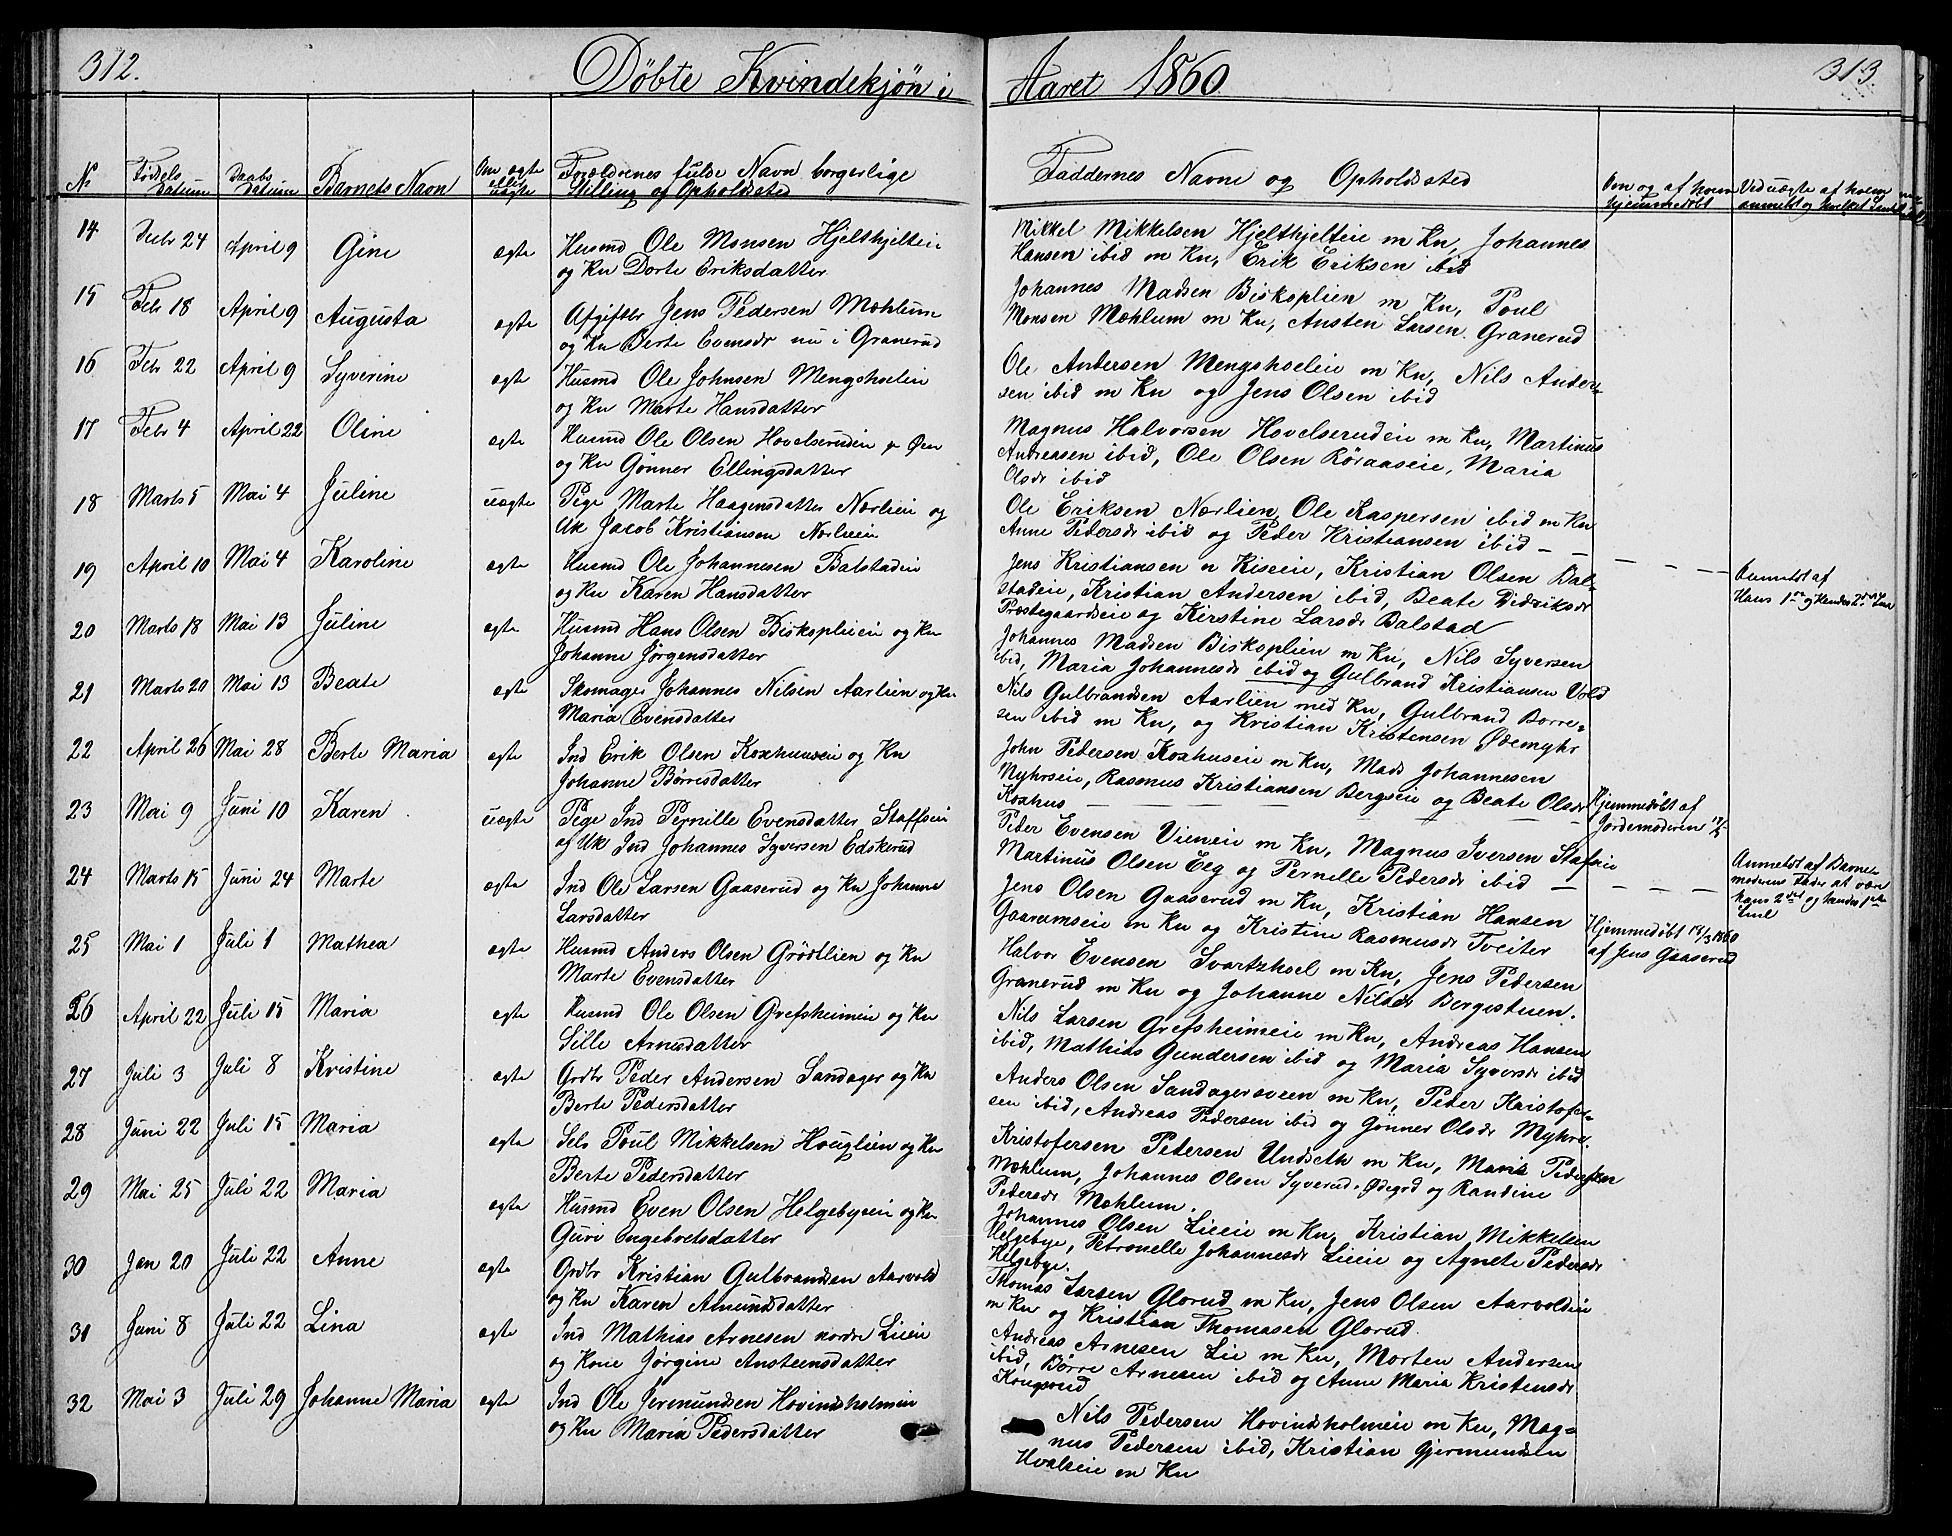 312.
Døbte Kvindekjøn i
Aaret 1860
313.
No
Fødsels Datum
Daabs Datum
Barnets Navn
Om ægte eller uægte
Forældrenes fulde Navn borgerlige
Stilling og Opholdsted
Faddernes Navne og Opholdsted
Om og af hvem
hjemmedøbt
Ved uægte af hvem
anmeldt og hvilket
14 Decbr 24 April 9 Gine ægte Husmd Ole Monsen Hjelthjelteie
og Kn Dorte Eriksdatter
Mikkel Mikkelsen Hjelthjelteie m Kn, Johannes
Hansen ibid m Kn, Erik Eriksen ibid
15 Febr 18 April 9 Augusta ægte Afgiftsbr Jens Pedersen Mæhlum
og Kn Berte Evensdr nu i Granerud
Johannes Madsen Biskoplien m Kn, Poul
Monsen Mæhlum m Kn, Austen Larsen Granerud
16 Febr 22 April 9 Syverine ægte Husmd Ole Johnsen Mengshoeleie
og Kn Marte Hansdatter
Ole Andersen Mengshoeleie m Kn, Nils Ander-
sen ibid m Kn og Jens Olsen ibid
17 Febr 4 April 22 Oline ægte Husmd Ole Olsen Hovelserudeie p Øen
og Kn Gønner Ellingsdatter
Magnus Halvorsen Hovelserudeie m Kn, Martinus
Andreasen ibid, Ole Olsen Röraaseie, Maria
Olsdr ibid
18 Marts 5 Mai 4 Juline uægte Pige Marte Haagensdatter Nærlien og
Uk Jacob Kristiansen Nærlieeie
Ole Eriksen Nærlien, Ole Kaspersen ibid m Kn
Anne Pedersdr ibid og Peder Kristiansen ibid - -
- - - -
Anmeldt af
Hans 1ste og Hendes 2det Leie
19 April 10 Mai 4 Karoline ægte Husmd Ole Johannesen Balstadeie
og Kn Karen Hansdatter
Jens Kristiansen n Kiseeie, Kristian Olsen Bal-
stadeie, Kristian Andersen ibid, Beate Didriksdr
Præstegaardseie og Kirstine Larsdr Balstad
20 Marts 18 Mai 13 Juline ægte Husmd Hans Olsen Biskoplieeie og Kn
Johanne Jørgensdatter
Johannes Madsen Biskoplien m Kn, Nils Syversen
ibid, Maria Johannesdr ibid og Gulbrand Kristiansen Vold
21 Marts 20 Mai 13 Beate ægte Skomager Johannes Nilsen Aarlien og Kn
Maria Evensdatter
Nils Gulbrandsen Aarlien med Kn, Gulbrand Borre-
sen ibid m Kn, og Kristian Kristensen Ødemyhr
22 April 26 Mai 28 Berte Maria ægte Ind Erik Olsen Koxhuuseie og Kn
Johanne Børresdatter
John Pedersen Koxhuseie m Kn, Mads Johannesen
Myhrseie, Rasmus Kristiansen Bergseie og Beate Olsdr
Koxhus - - - - -
Hjemmedøbt af
Jordemoderen
23 Mai 9 Juni 10 Karen uægte Pige Ind Pernille Evensdatter Staffseie
af Uk Ind Johannes Syversen Edskerud
Peder Evensen Vieneie m Kn, Magnus Iversen Stafseie
Martinus Olsen Eeg og Pernille Pedersdr ibid - - - -
Anmeldt af Barne-
moderens Fader at være
hans 2det og hendes 1ste
Leie
24 Marts 15 Juni 24 Marte ægte Ind Ole Larsen Gaaserud og Kn Johanne
Larsdatter
Jens Olsen Gaaserud m Kn, Kristian Hansen
Gaaramseie m Kn og Kristine Rasmusdr Tveiter
Hjemmedøbt 18/3 1860
af Jens Gaaserud
25 Mai 1 Juli 1 Mathea ægte Husmd Anders Olsen Grødtlien og Kn
Marte Evensdatter
Halvor Evensen Svartzhoel m Kn, Jens Pedersen
Granerud m Kn og Johanne Nilsdr Bergestuen.
26 April 22 Juli 15 Maria ægte Husmd Ole Olsen Grefsheimeie og Kn
Sille Arnesdatter
Nils Larsen Grefsheimeie m Kn, Andreas Hansen
ibid, Mathias Gundersen ibid og Maria Syversdr ibid
27 Juli 3 Juli 8 Kristine ægte Grdbr Peder Andersen Sandager og Kn
Berte Pedersdatter
Anders Olsen Sandagersveen m Kn, Peder Kristofer-
sen ibid, Andreas Pedersen ibid og Gønner Olsdr Myhre.
28 Juni 22 Juli 15 Maria ægte Sels Poul Mikkelsen Houglien og Kn
Berte Pedersdatter
Kristofersen Pedersen Undseth m Kn, Maris Pedersen
Mæhlum, Johannes Olsen Syverud-Ødegrd og Randine
Pedersdr Mæhlum.
29 Mai 25 Juli 22 Maria ægte Husmd Even Olsen Helgebyeie og Kn
Guri Engebretsdatter
Johannes Olsen Lieeie m Kn, Kristian Mikkelsen
Helgebye, Petronelle Johannesdr Lieeie og Agnete Pedersdr
Helgebye.
30 Jan 20 Juli 22 Anne ægte Grdbr Kristian Gulbrandsen Aarvold
og Kn Karen Amundsdatter
Thomas Larsen Glorud m Kn, Jens Olsen Aarvoldeie
m Kn og Kristian Thomasen Glorud.
31 Juni 8 Juli 22 Lina ægte Ind Mathias Arnesen nordre Lieeie
og Kone Jørgine Anstensdatter
Andreas Arnesen Lie m Kn, Morten Andersen
ibid, Børre Arnesen ibid og Anne Maria Kristensdr
Kongsrud
32 Mai 3 Juli 29 Johanne Maria ægte Ind Ole Jermundsen Hovindsholmeie
og Kn Maria Pedersdatter
Nils Pedersen Hovindsholmeie m Kn, Mag-
nus Pedersen ibid, Kristian Gjermundsen
Hvalseie m Kn